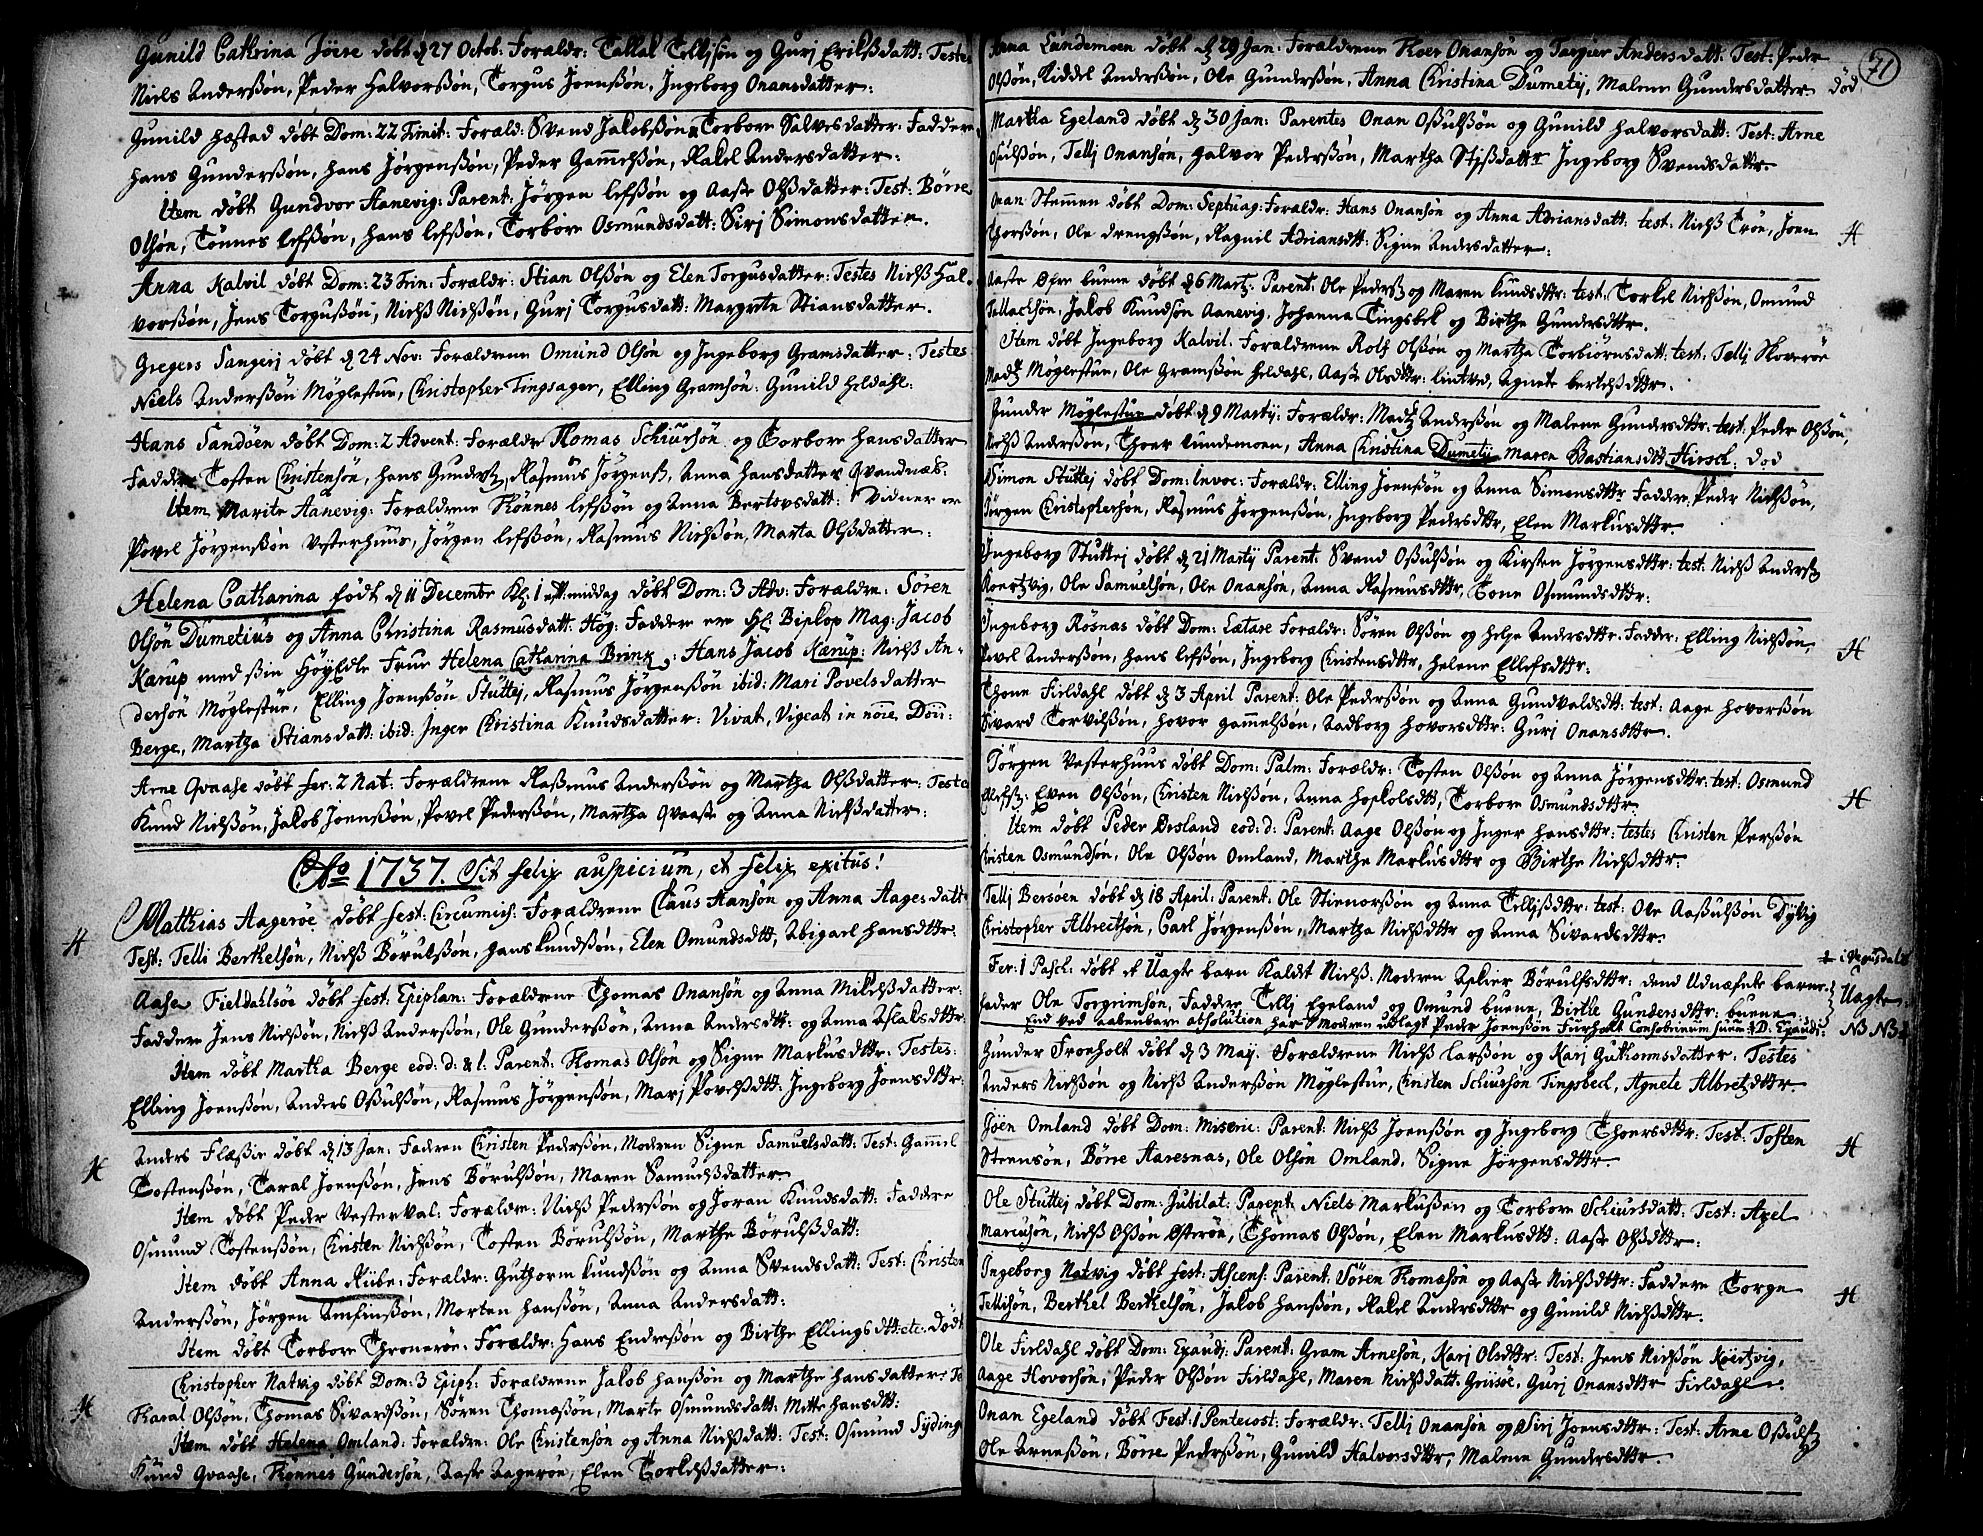 Gunild Cathrina Jöree döbt d 27 Octob: Foraldr: Tallak Telljsön og Gurj Eriksdatt: Testes
Niels Anderssön, Peder Halvorssön, Torgus Joenssön, Ingeborg Onansdatter:
Gunild Hastad döbt Dom: 22 Trinit: Forald: Svend Jakobssön Torborr Salvesdatter: Faddere
Hans Gunderssön, Hans Jörgenssön, Peder Gamelssön, Rakel Andersdatter:
Item döbt Gundvor Aanevig: Parent: Jörgen Lefssön og Aase Olssdatter: Test: Börre
Olssön, Tönnes Lefssön, Hans Lefssön, Torborr Osmundsdatt: Sirj Simonsdatter.
Anna Kalvil döbt Dom: 23 Trin: Foraldr: Stian Olssön og Elen Torgusdatter: Testes Nielss Hal-
vorssön, Jens Torgussön, Nielss Nielssön, Gurj Torgusdatt: Margrete Stiansdatter.
Gregers Sangerj döbt d 24 Nov: Foraldrene Omund Olssön og Ingeborg Gramsdatter: Testes
Niels Anderssön Möglestue, Christopher Tingsager, Elling Gramsön: Gunild Heldahl:
Hans Sandöen döbt Dom: 2 Advent: Foraldr Thomas Schiursön og Torborr Hansdatter
Faddere Tosten Christensön, Hans Gunders, Rasmus Jörgens, Anna Hansdatter Qvandnæs.
Item Marite Aanevig: Foraldrene Thönnes Lefssön og Anna Bertevsdatt: Vidner er
Povel Jörgenssön Vesterhuus, Jörgen Lefssön, Rasmus Nielssön, Marta Olssdatter:
Helena Catharina födt d 11 Decembr Kl: 1 eftmiddag döbt Dom: 3 Adv: Foraldre: Sören
Olsön Dumetius og Anna Christina Rasmusdatt: Hög: Fadder er Hr: Biskop Mag: Jacob
Kærup med sin HöyEdle Frue Helena Catharina Brinx: Hans Jacob Kærup: Nielss An-
dersön Möglestue, Elling Joenssön Stuttej, Rasmus Jörgenssön ibid: Mari Povelsdatter
Berge, Martha Stiansdatt: ibid: Inger Christina Knudsdatter: Vivat, Vigeat in noie, Doii:
Arne Qvaase döbt fer: 2 Nat: Foraldrene Rasmus Anderssön og Martha Olssdatter: Teste
Knud Nielssön, Jakob Joenssön, Povel Pederssön, Martha Qvaase og Anna Nielssdatter:
Ao 1737. Sit felix auspicium, et felix exitus!
Matthias Aagerøe döbt fest: Circumcis: Foraldrene Claus Hansön og Anna Aagesdatt
H Test: Telli Berthelsön, Nielss Börulssön, Hans Knudssön, Elen Omundsdtt, Abigael Hansdttr.
Aase Fieldahlsöe döbt fest: Epiphan: Foraldrene Thomas Onansön og Anna Mikelssdatter:
Faddere Jens Nielssön, Nielss Anderssön, Ole Gunderssön, Anna Andersdtt: og Anna Aslaksdttr
Item döbt Martha Berge eod: d: & l: Parent: Thomas Olssön og Signe Markusdttr: Testes:
Elling Joenssön, Anders Ossulssön, Rasmus Jörgenssön, Marj Povelssdtt: Ingeborg Joensdttr:
Anders Flæsie döbt d 13 Jan: Faderen Christen Pederssön, Moderen Signe Samuelsdatt: Test: Gamel
H Tostenssön, Taral Joenssön, Jens Börulssön, Maren Samuelssdatter.
Item döbt Peder Vesterval: Foraldre: Nielss Pederssön og Joran Knudsdatt: Faddere
Osmund Tostenssön, Christen Nielssön, Tosten Börulssön, Marthe Börulssdatt:
Item döbt Anna Riibe: Foraldr: Guthorm Knudssön og Anna Svendsdatt: Test: Christen
Anderssön, Jörgen Amfinssön, Morten Hanssön, Anna Andersdatt:
Item döbt Torborr Thronerön: Foraldr: Hans Endressön og Birthe Ellingsdtt: etc. Död
Christopher Natvig döbt Dom: 3 Epiph: Foraldrene Jakob Hanssön og Marthe Hansdatter: Te
H Tharal Olssön, Thomas Sivardssön, Sören Thomæssön, Marte Osmundsdatt: Mette Hansdtt:
Item döbt Helena Omland: Foraldre: Ole Christensön og Anna Nielssdatt: Test: Osmund Syding
Knud Qvaase, Thönnes Gundersön, Aase Aagerön, Elen Torkelssdatter:
71
Anna Lundemoen döbt d 29 Jan: Foraldrene Thoer Onansön og Targier Andersdatt: Test: Peder
Olssön, Reddel Anderssön, Ole Gunderssön, Anna Christina Dumetij, Malene Gundersdatter. död
Martha Egeland döbt d 30 Jan: Parentes Onan Ossulssön og Gunild Halvorsdatt: Test: Arne
Osulssön, Tellj Onansön, Halvor Pederssön, Martha Stissdatter Ingeborg Svendsdatter.
Onan Stemmen döbt Dom: Septuag: Foraldr: Hans Onansön og Anna Adriansdatt: test: Nielss Tröe, Joen
Thorssön, Ole Drengssön, Ragnil Adriansdtt: Signe Andersdatter: H
Aaste Øfre buene döbt d 6 Martj: Parent: Ole Peders og Maren Knudsdttr: test: Torkel Nielssön, Omund
Tellachsön, Jakob Knudssön Aanevig, Johanna Tingsbek og Birthe Gundersdttr.
Item döbt Ingeborg Kalvil. Foraldrene Rolf Olssön og Martha Torbiörnsdatt: test: Tellj Skoverön
Mads Möglestue, Ole Gramssön Heldahl, Aase Olsdttr: Lintved, Agnete Bertelssdttr.
Gunder Möglestue döbt d 9 Martij: Foraldr: Mads Anderssön og Malene Gundersdttr: test: Peder Olssön,
Nielss Anderssön, Thoer Lundemoen, Anna Christina Dumetij Maren Bastiansdtt Hirsch: Död
Simon Stuttej döbt Dom: Invoc: Foraldr: Elling Joenssön og Anna Simonsdttr Faddere: Peder Nielssön,
Jörgen Christophersön, Rasmus Jorgenssön, Ingeborg Pedersdttr, Elen Markusdttr.
Ingeborg Stuttej döbt d 21 Martij Parent: Svend Ossulssön og Kirsten Jörgensdttr: test: Nielss Anders
Koertzvig, Ole Samuelsön, Ole Onansön, Anna Rasmusdttr, Tone Osmundsdttr:
Ingeborg Rösnas döbt Dom: Lætare Foraldr: Sören Olssön og Helje Andersdttr: Fadder: Elling Nielssön,
Povel Anderssön, Hans Lefssön, Ingeborg Christensdttr, Helene Ellefsdttr: H
Thone Fieldahl döbt d 3 April Parent: Ole Pederssön og Anna Gundvaldsdtt: test: Aage Hovorssön
Sivard Torvilssön, Hovor Gamelssön, Aadborg Hovorsdttr: Gurj Onansdttr.
Jörgen Vesterhuus döbt Dom: Palm: Foraldr: Tosten Olssön og Anna Jörgensdttr: test: Osmund
Even Olssön, Christen Nielssön, Anna Hoskolsdtt, Torborr Osmundsdttr H
Item döbt Peder Öesland eod: d: Parent: Aage Olssön og Inger Hansdttr: testes Christen Perssön
Christen Osmundssön, Ole Olssön Omland, Marthe Markusdttr og Birthe Nielssdttr:
Tellj Bersöen döbt d 18 April: Parent: Ole Stienorssön og Anna Telljssdttr: test: Ole Aassulssön Dybvig
Christopher Albrectsön, Carl Jörgenssön, Martha Nielssdttr og Anna Sivardsdttr.
Fer: 1 Pasch: döbt et Uagte barn Kaldt Nielss. Moderen Askier Börulfsdttr: dend Udnæfnte barne- i Vegusdal
fader Ole Torgrimsön, Faddere Tellj Egeland og Omund buene, Birthe Gundersdttr: buene Uagte
End ved aabenbare absolution har Moderen udlagt Peder Joenssön Fuirholt Consobrinum suum: D: Exaudi: NB NB
Gunder Troeholt döbt d 3 Maij. Foraldrene Nielss Larssön og Karj Guthormsdatter: Testes
Anders Nielssön og Nielss Anderssön Möglestue, Christen Schiursön Tingsbeck, Agnete Albretsdttr
Joen Omland döbt Dom: Miseric: Parent: Nielss Joenssön og Ingeborg Thoersdttr: Test: Tosten
Steensön, Börre Aaresnas, Ole Olssön Omland, Signe Jörgensdttr. H
Ole Stuttej döbt Dom: Jubilat: Parent: Niels Markussen og Torborr Schiursdatt: Test: Axel
Marcusön, Nielss Olssön Österöe, Thomas Olssön, Elen Markusdtt: Aase Olssdttr:
Ingeborg Natvig döbt fest: Ascens: Parent: Sören Thomæsön og Aase Nielssdttr: Faddere Torge
Tellisön, Berthel Berthelsön, Jakob Hanssön, Rakel Andersdttr og Gunild Nielssdttr. H
Ole Fieldahl döbt Dom: Exaudj: Parent: Gram Arnesön, Karj Olsdttr: Test: Jens Nielssön Koertzvig,
Aage Hovorsön, Peder Olssön Fieldahl, Maren Nielssdatt: Griisöe, Gurj Onansdttr Fieldahl.
Onan Egeland döbt Fest: 1 Pentecost: Foraldr: Tellj Onansön og Sirj Joensdttr: Test: Arne Ossuls
Ole Arnessön, Börre Pederssön, Gunild Halvorsdttr, Malene Gundersdttr.